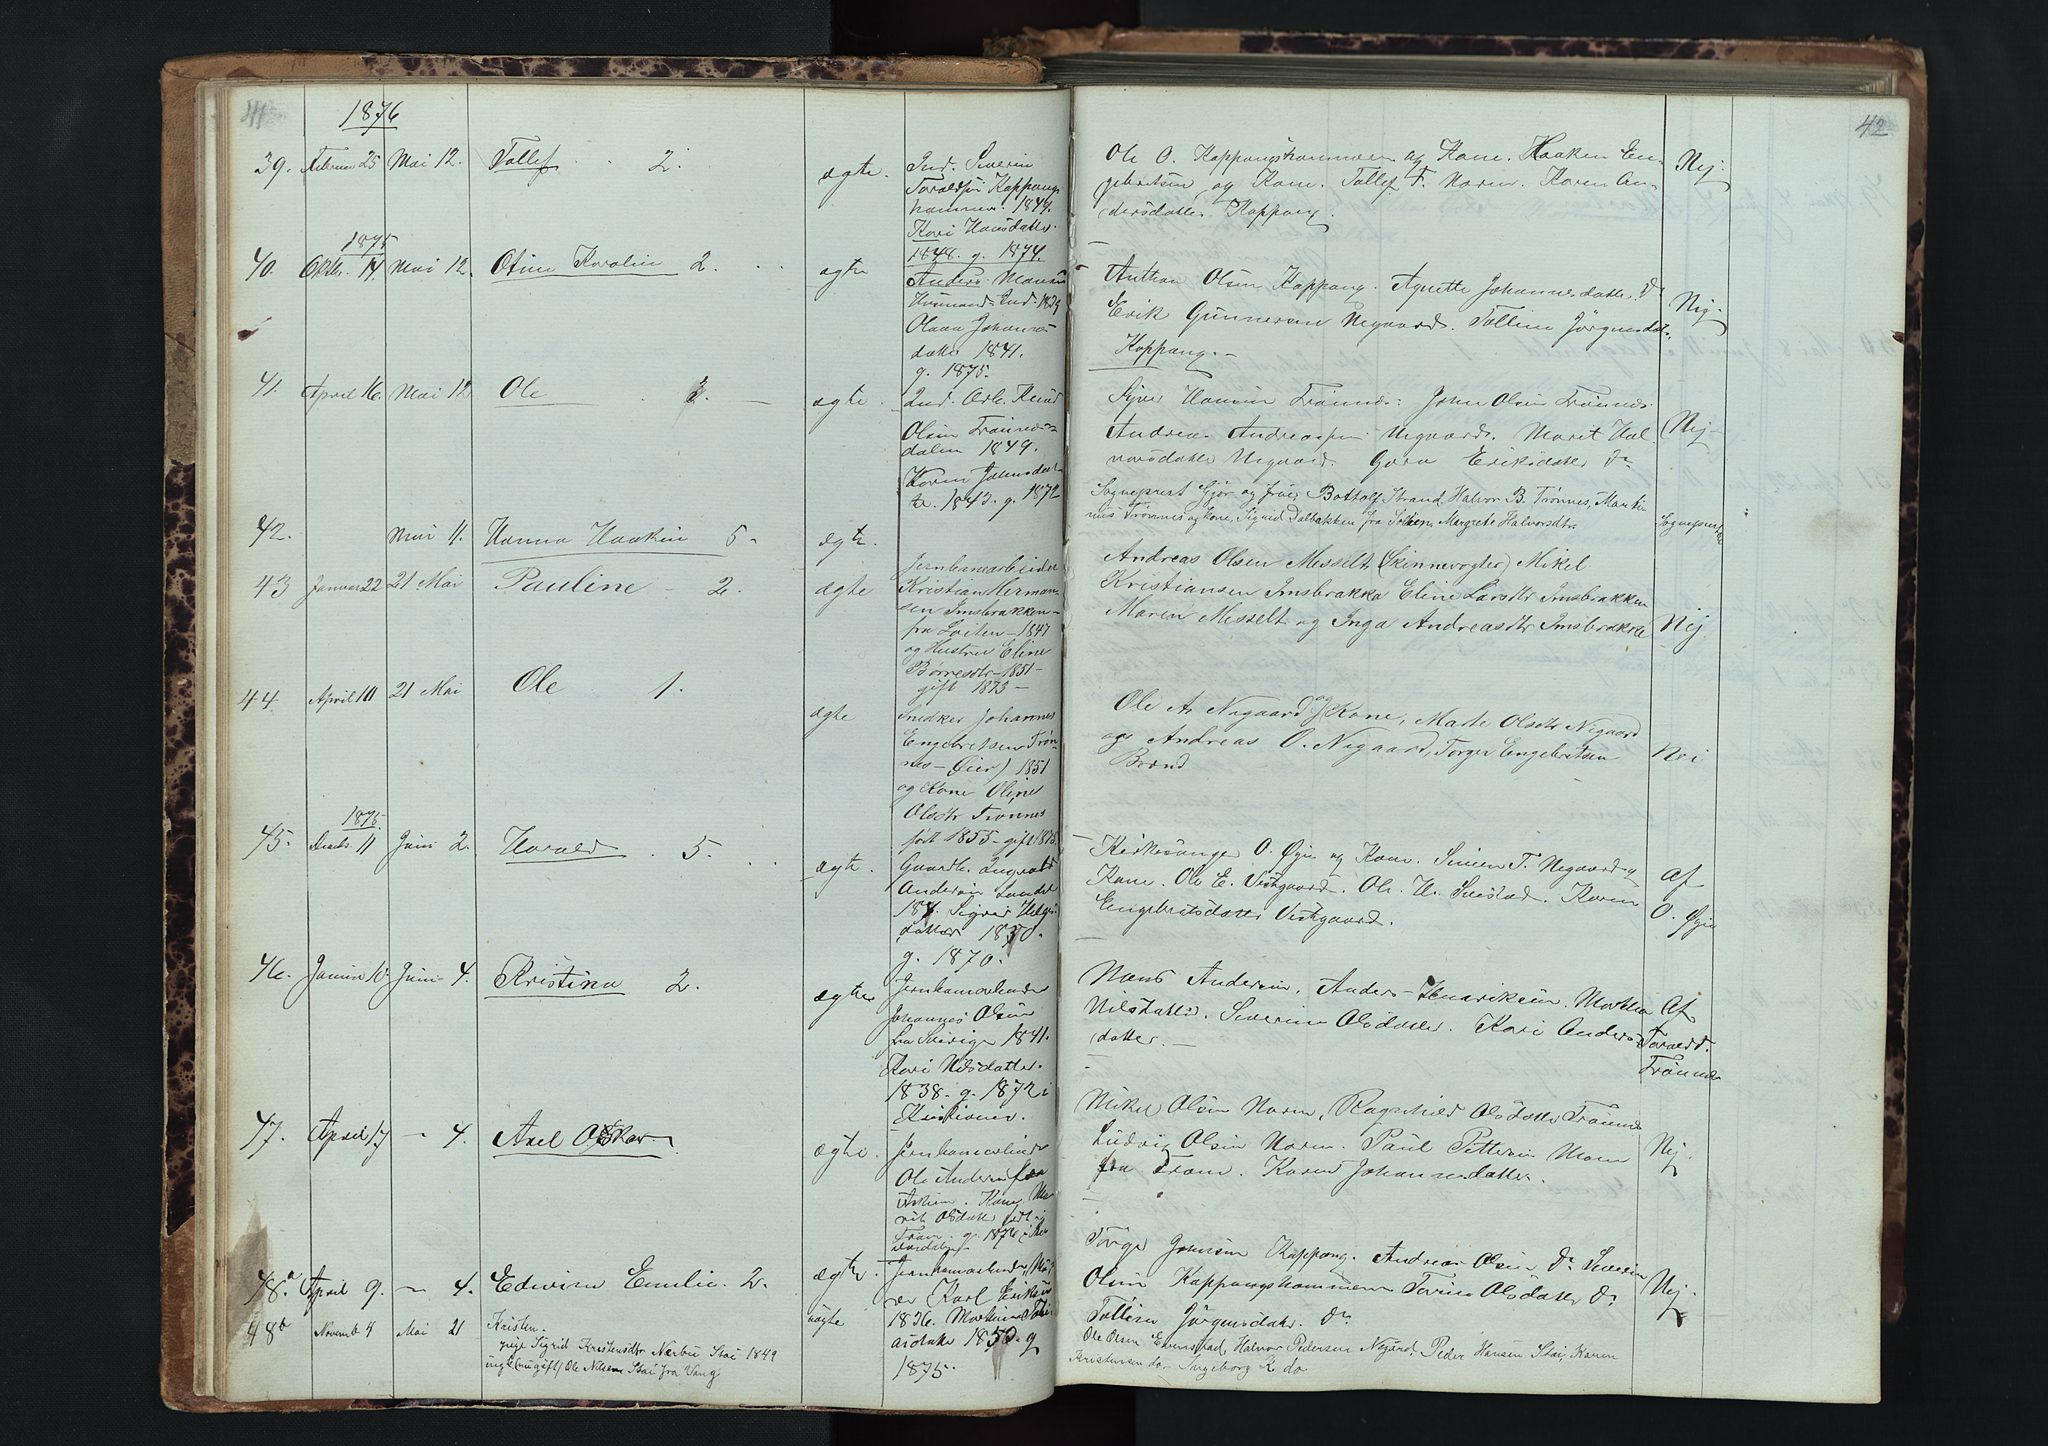 41
1876
39. Februar 25 Mai 12. Tollef 2. ægte. Ind. Severin
Toraldsen Koppang
hammer. 1849.
Kari Hansdatter
1848. g. 1874.
1875
40. Oktbr. 14. Mai 12. Otine Karoline 2. ægte Anders Monsen
Husmand Ind. 1829
Olava Johannes
datter 1841.
g. 1875.
41. April 16. Mai 12 Ole 3. ægte. Ind. Arb. Knud
Olsen Trønnes
dalen 1849.
Karen Johnsdat
ter. 1843. g. 1872
42. Mai 11. Hanna Haakine 5. ægte.
43 Januar 22 21 Mai Pauline 2. ægte Jernbanearbeider
Kristian Herman
sen Imsbrakken
fra Løiten 1847
og Hustru Eline
Børresdtr 1851
gift 1873
44 April 10 21 Mai Ole 1. ægte Snidker Johannes
Engebretsen Trøn
nes Øien 1851
og Kone Oline
Olsdtr Trønnes
født 1855 gift 1875
1875
45. Decbr. 11 Juni 2. Harald 5. ægte. Gaardb. Ingvald
Andersen
Sigrid Helges
datter 1850.
g. 1870.
46. Januar 10 Juni 4. Kristina 2. ægte Jernbanearbeider
Johannes Olsen
fra Sverige 1841.
Kari Nilsdatter.
1838. g. 1872 i
Kristiania.
47. April 17 — 4. Axel Oskar ægte. Jernbanearbeider
Ole Andersen fra
Askim. Kone Ma
rit Olsdatter født i
48a April 9. — 4. Edvine Emilie 2. ægte. Jernbanearbeider
Karl Eriksen
1836.
1850. g
1875.
48b Novemb 4 Mai 21 Kristen. uægte
pige Sigrid Kristensdtr Nerbu Stai 1849
ungk (nu gift) Ole Nilsen Stai fra Vang
42
Ole O. Koppangshammeren og Kone. Haaken En
gebretsen og Kone. Tollef T. Moren. Karen An
dersdatter Koppang. Nej.
Anthon Olsen Koppang. Agnette Johannesdatter do
Erik Gunnersen Negaard. Tolline Jørgensdatr
Koppang. Nej.
Syver Hansen Trønnes. John Olsen Trønnes.
Andrea Andreassen Negaard. Marit Hal
vorsdatter Negaard. Goro Eriksdatter do Nej
Sogneprest Gjør og frue, Bottolf Strand, Halvor B. Trønnes, Marti
nus Trønnes og kone, Sigrid Dalbakken fra Solien, Margrete Halvorsdtr. Sognepresten
Andreas Olsen Messelt (Skinnevogter) Mikel
Kristiansen Imsbrakka Eline Larsdtr Imsbrakken
Maren Messelt og Inga Andreasdtr Imsbrakke Nej
Ole A. Negaard og Kone, Marte Olsdtr Negaard
og Andreas O. Negaard, Torger Engebretsen
Brænd Nei
Kirkesanger O. Øyen og Kone. Simen T. Negaard og
Kone. Ole E. Vestgaard. Ole H. Svestad. Karen
Engebretsdatter Vestgaard. Af
O. Øyen
Hans Andersen. Anders Henriksen. Marthea
Nilsdatter. Severine Olsdatter. Kari Anders
datter. Af
Torald
Trønnes
Mikel Olsen Moren, Ragnhild Olsdatter Trønnes
Ludvig Olsen Moren. Paul Pettersen Moen
fra Tron. Karen Johannesdatter. Nej.
Torger Johnsen Koppang. Andreas Olsen do Severin
Olsen Koppangshammeren Torine Olsdatter do
Tolline Jørgensdatr. do Nej
Ole Olsen Evenstad, Halvor Pedersen Negård, Peder Hansen Stai, Karen
Kristensen do Ingeborg K do